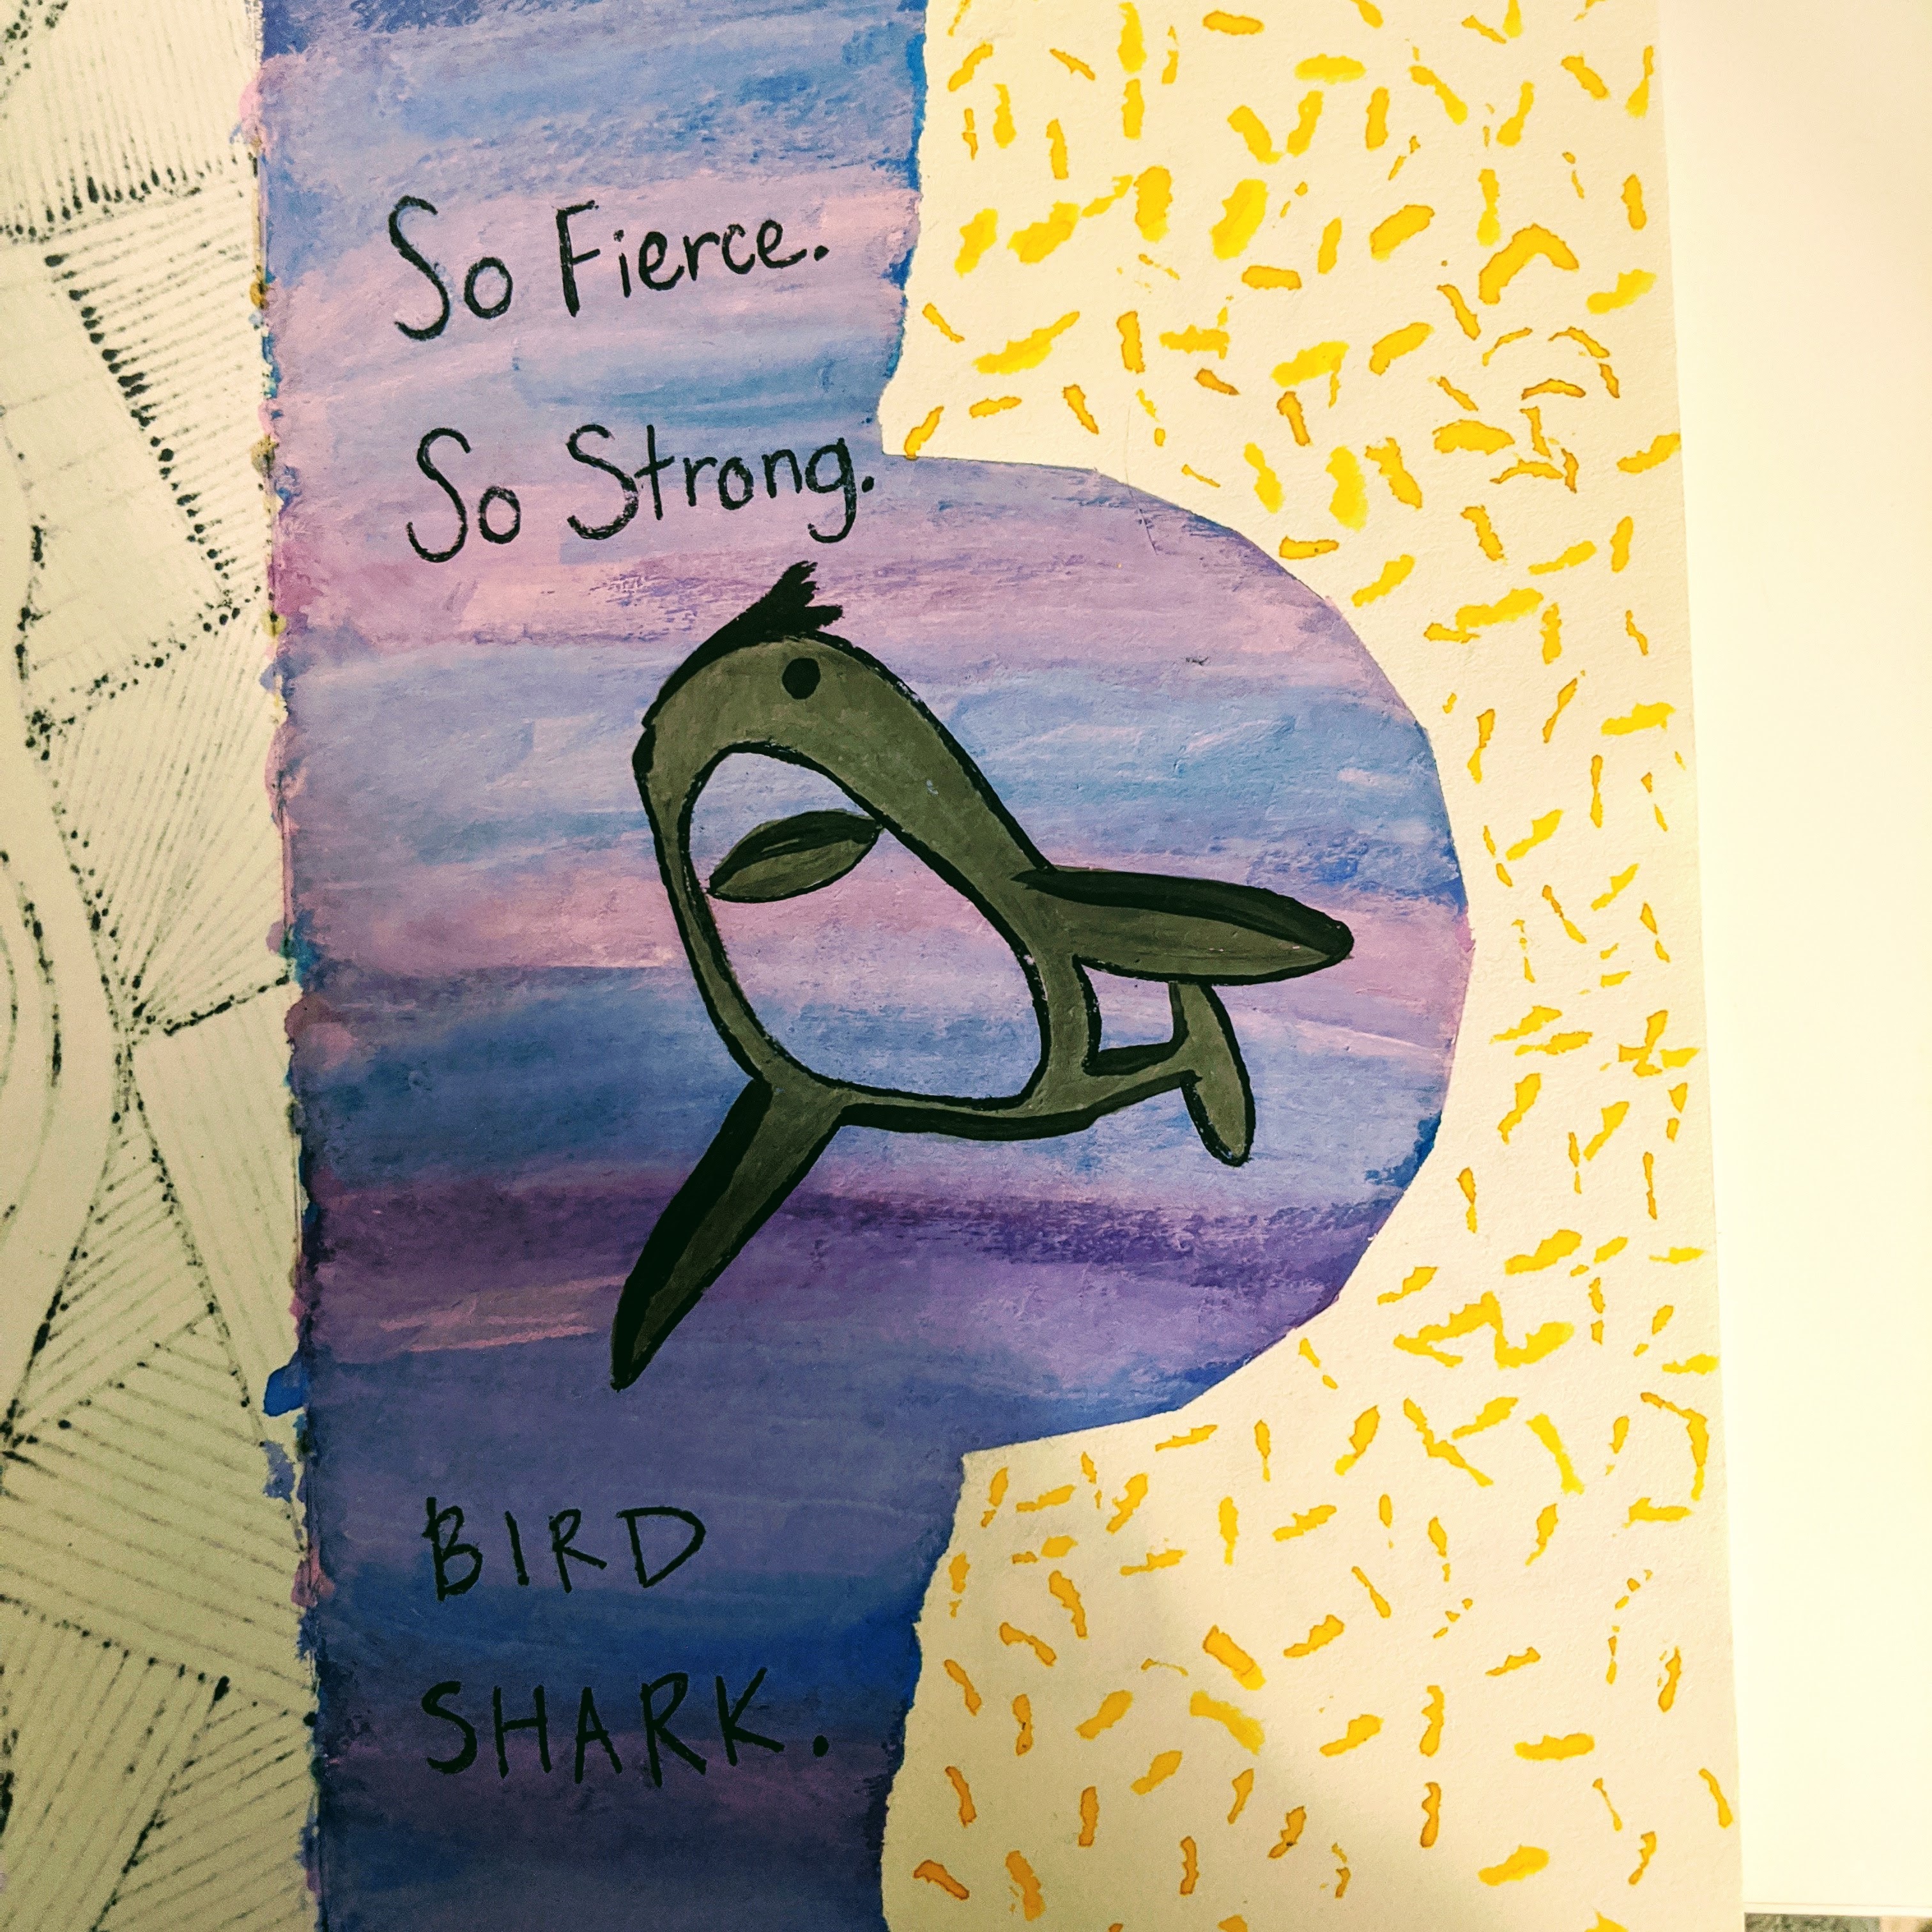 So Fierce.
So Strong.
BIRD
SHARK.